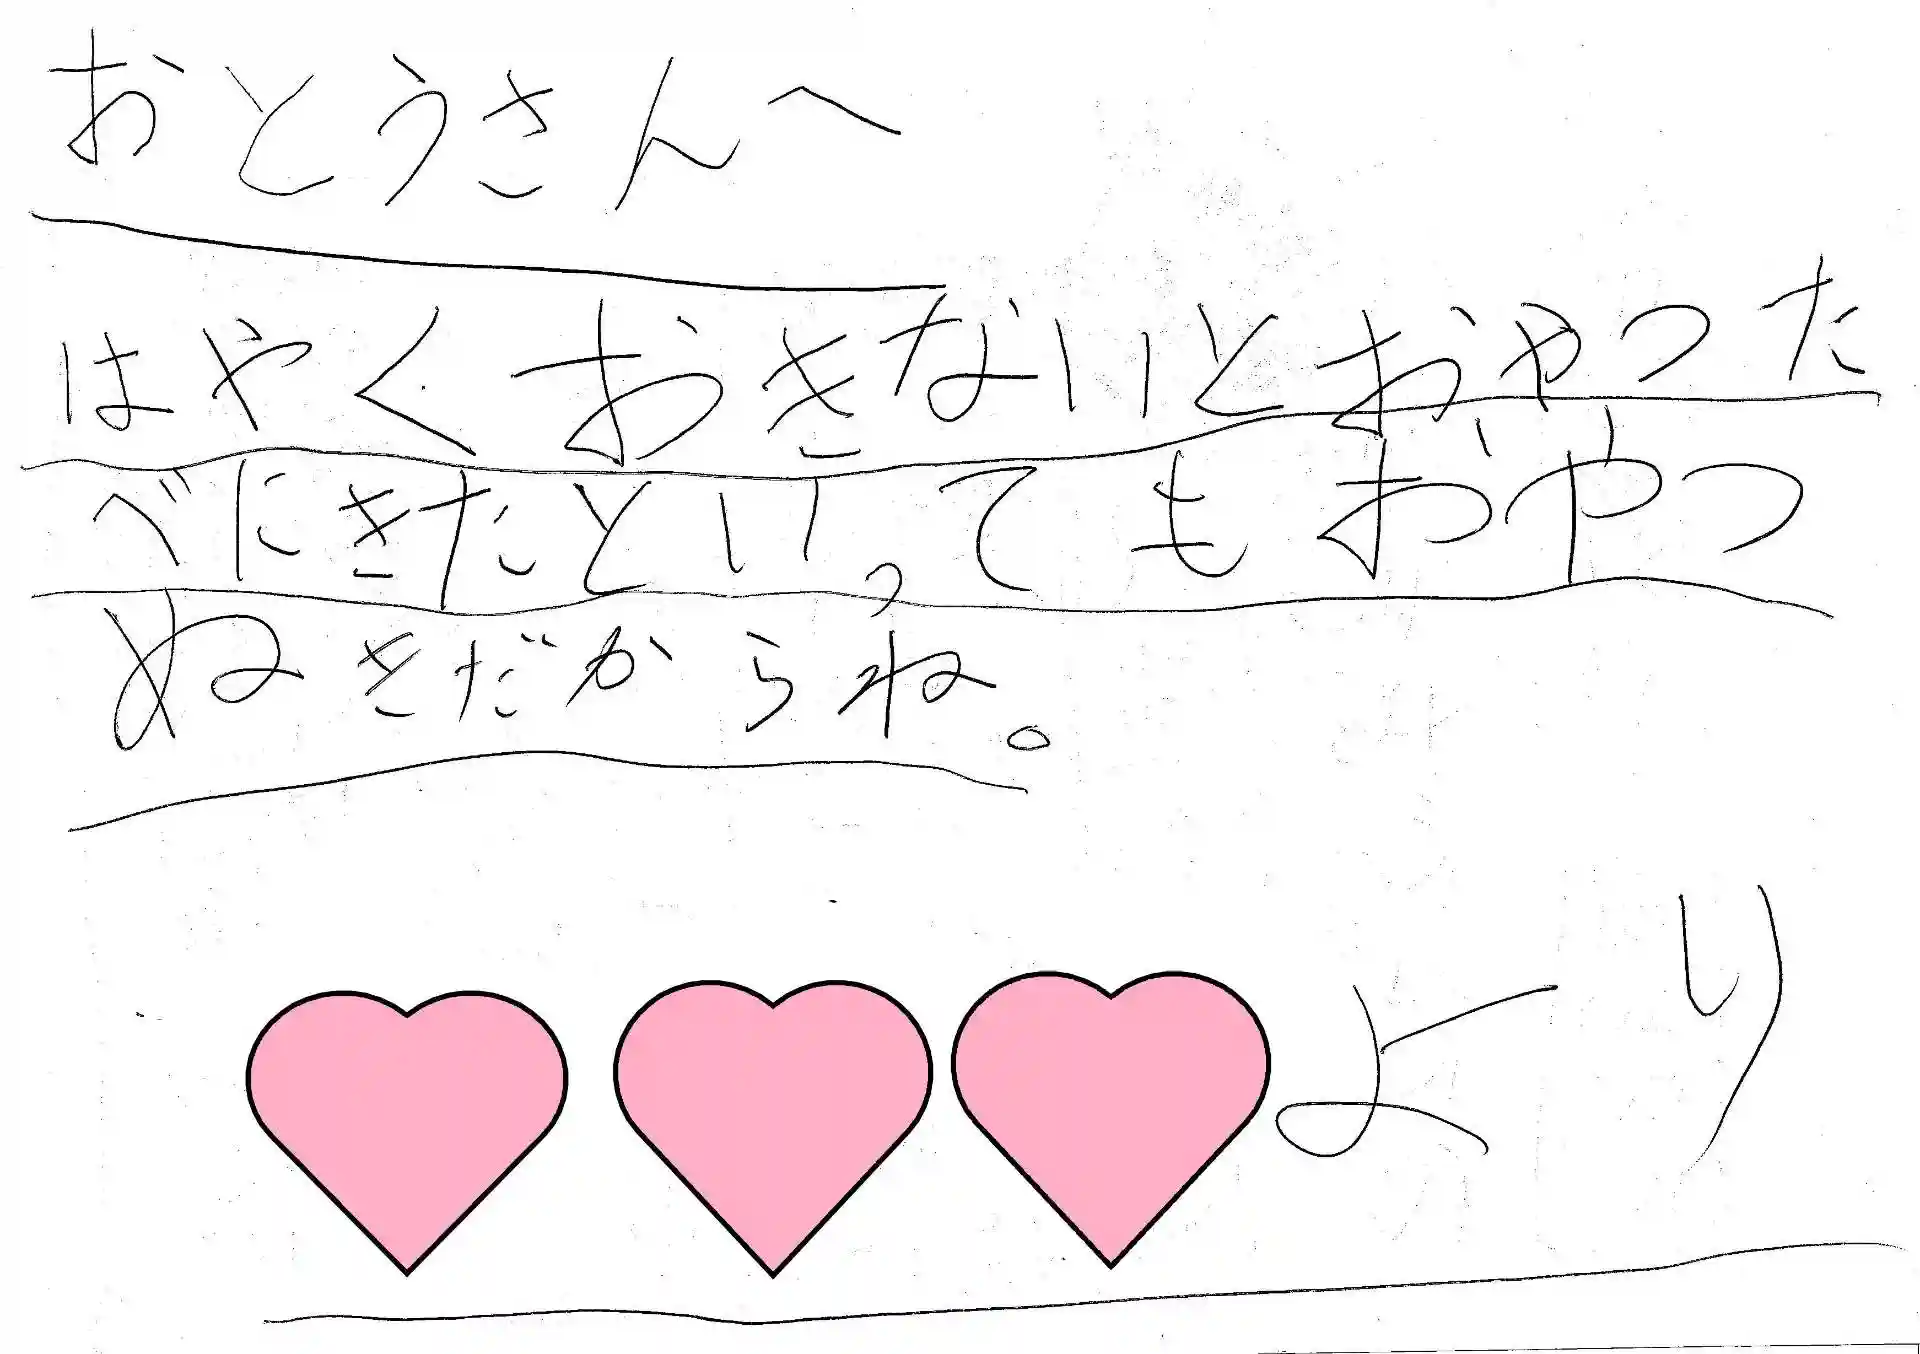 おとうさんへ
はやくおきないとおやつた
べにきたといってもおやつ
ぬきだからね。
より